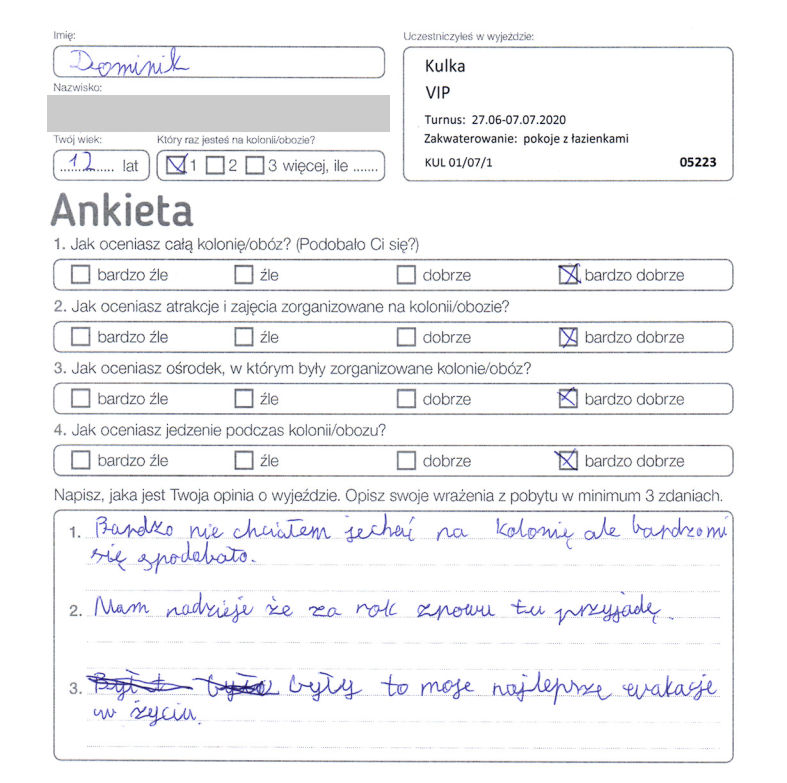 Imię:
Dominik
Nazwisko:
Twój wiek:
12 lat
Który raz jesteś na kolonii/obozie?
1 2 3 więcej, ile .......
Uczestniczyłeś w wyjeździe:
Kulka
VIP
Turnus: 27.06-07.07.2020
Zakwaterowanie: pokoje z łazienkami
KUL 01/07/1 05223
Ankieta
1. Jak oceniasz całą kolonię/obóz? (Podobało Ci się?)
bardzo źle źle dobrze bardzo dobrze
2. Jak oceniasz atrakcje i zajęcia zorganizowane na kolonii/obozie?
bardzo źle źle dobrze bardzo dobrze
3. Jak oceniasz ośrodek, w którym były zorganizowane kolonie/obóz?
bardzo źle źle dobrze bardzo dobrze
4. Jak oceniasz jedzenie podczas kolonii/obozu?
bardzo źle źle dobrze bardzo dobrze
Napisz, jaka jest Twoja opinia o wyjeździe. Opisz swoje wrażenia z pobytu w minimum 3 zdaniach.
1. Bardzo nie chciałem jechać na kolonię ale bardzo mi
się spodobało.
2. Mam nadzieje że za rok znowu tu przyjadę.
3. były to moje najlepsze wakacje
w życiu.